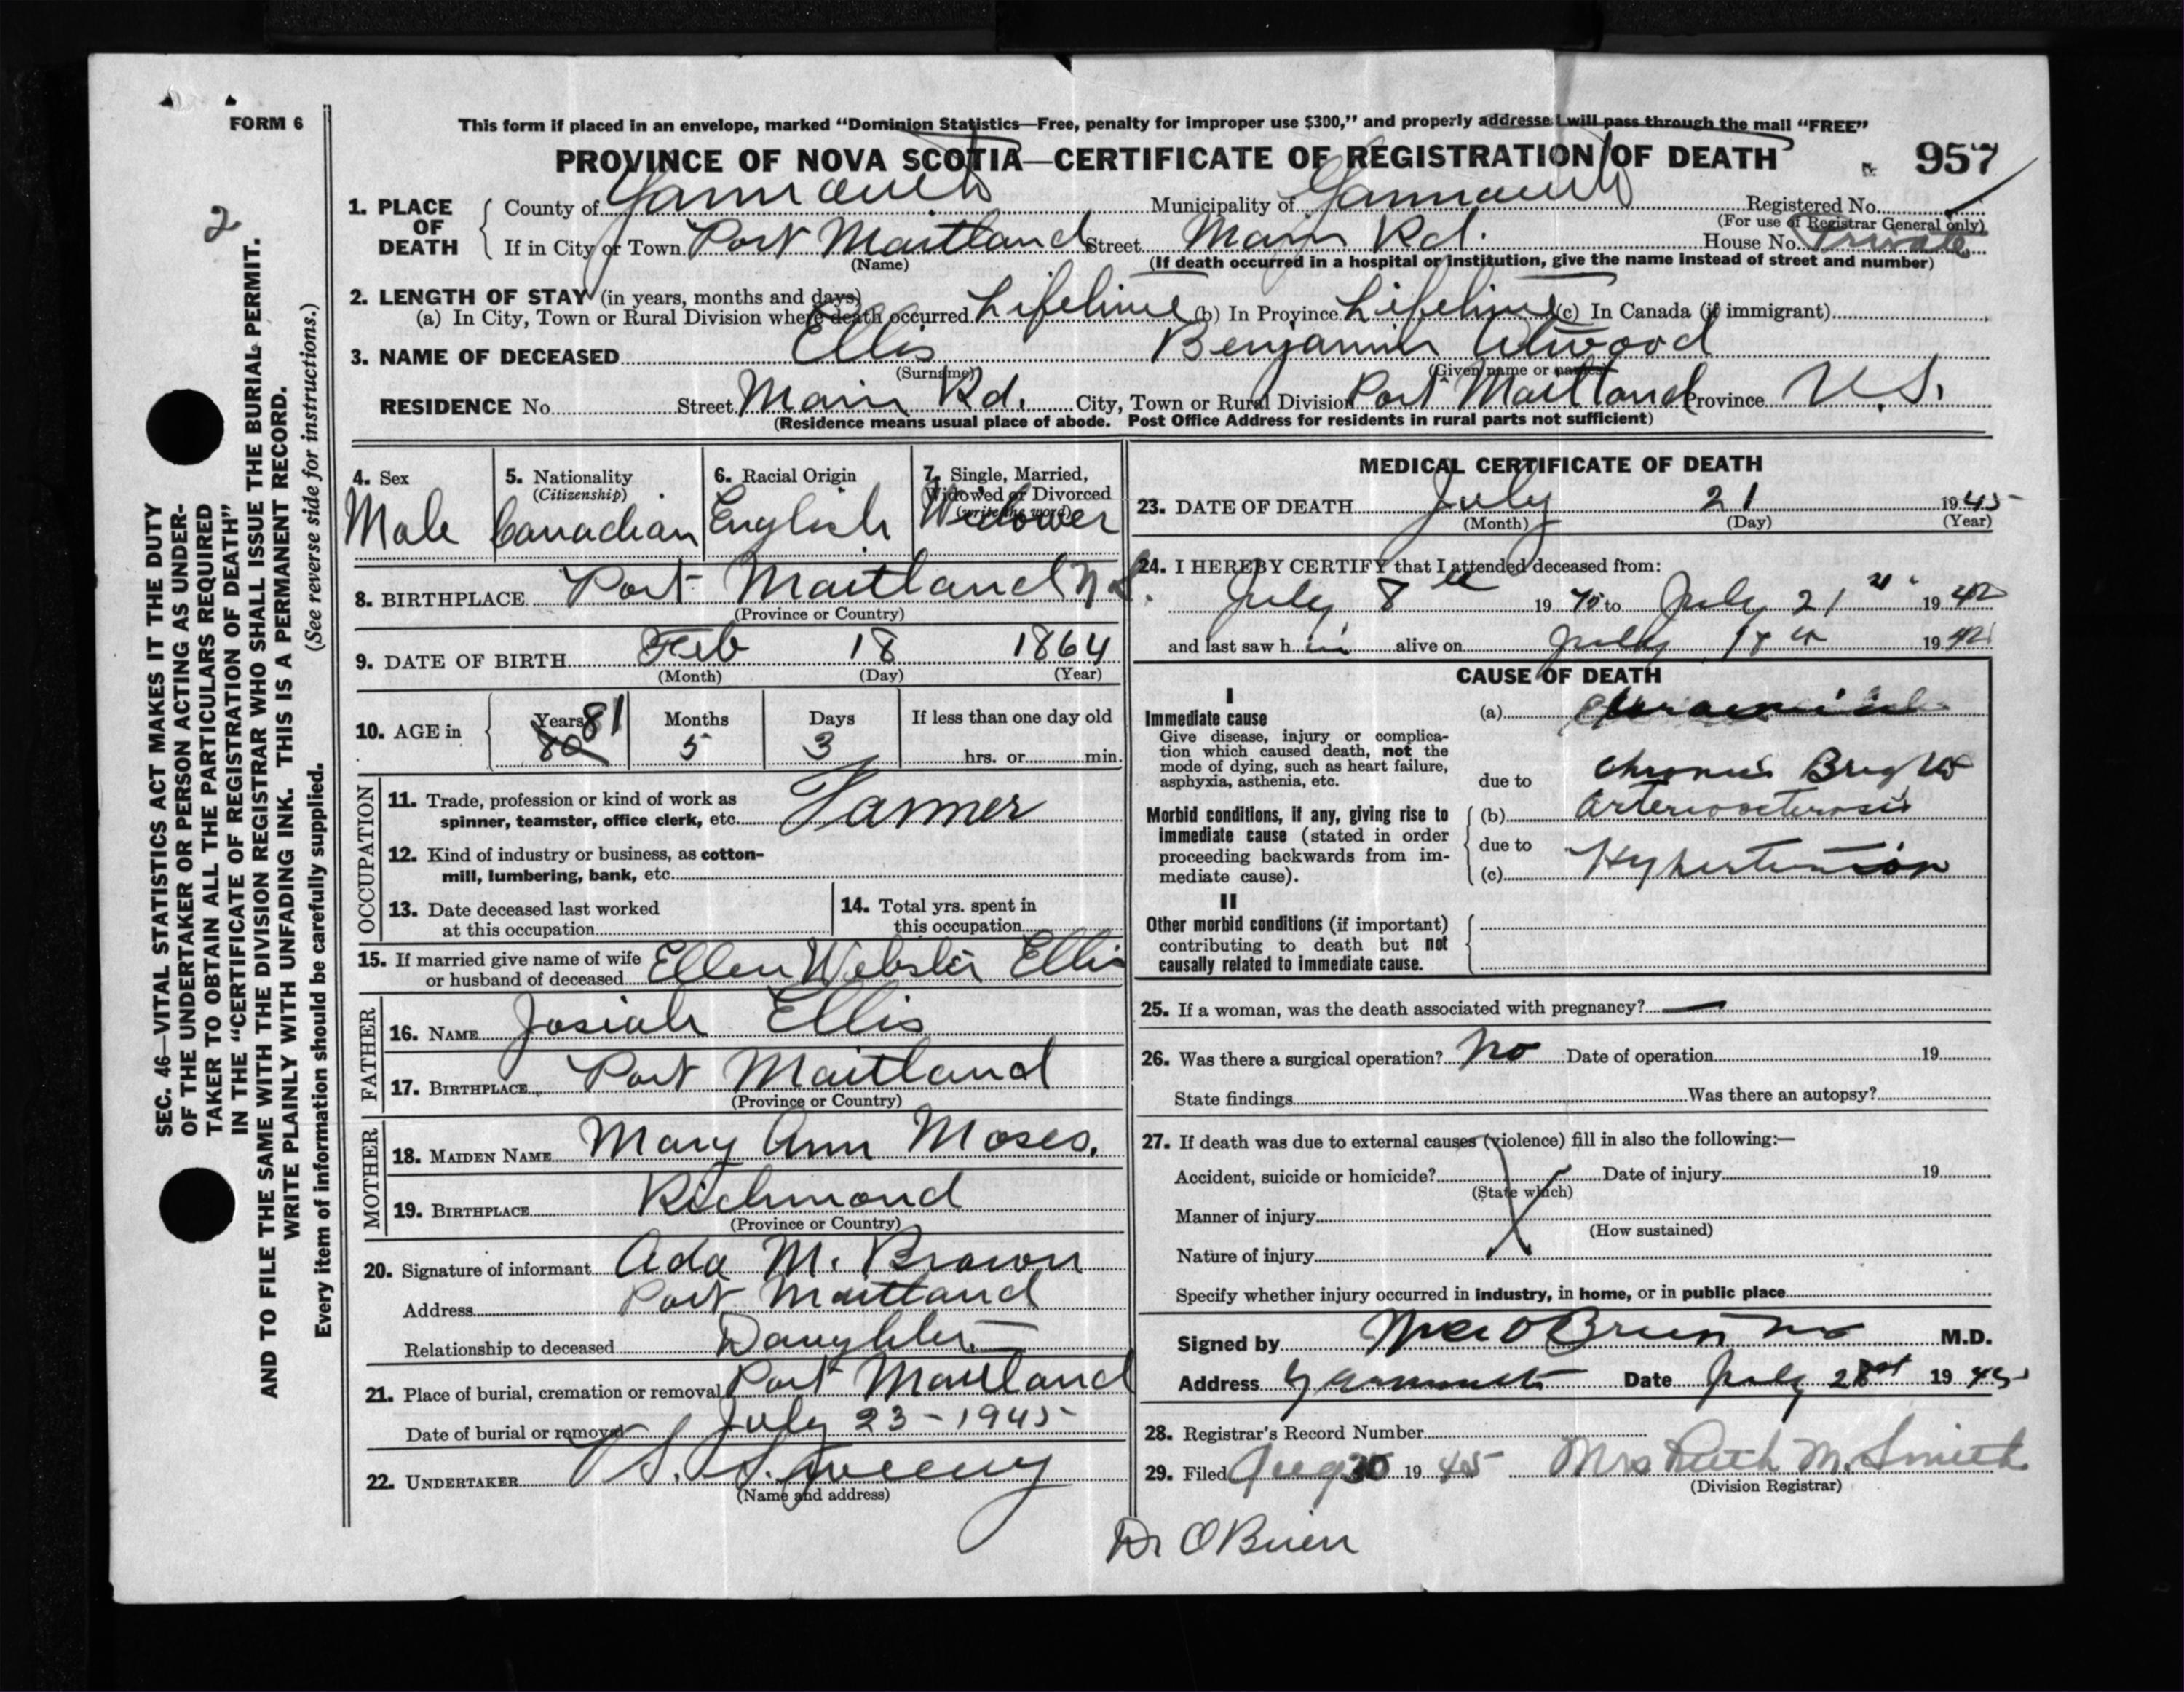 FORM 6
This form if placed in an envelope, marked "Dominion Statistics—Free, penalty for improper use $300," and properly addressed will pass through the mail "FREE"
PROVINCE OF NOVA SCOTIA—CERTIFICATE OF REGISTRATION OF DEATH
957
2
SEC. 46—VITAL STATISTICS ACT MAKES IT THE DUTY
OF THE UNDERTAKER OR PERSON ACTING AS UNDER-
TAKER TO OBTAIN ALL THE PARTICULARS REQUIRED
IN THE "CERTIFICATE OF REGISTRATION OF DEATH"
AND TO FILE THE SAME WITH THE DIVISION REGISTRAR WHO SHALL ISSUE THE BURIAL PERMIT.
WRITE PLAINLY WITH UNFADING INK. THIS IS A PERMANENT RECORD.
Every item of information should be carefully supplied. (See reverse side for instructions.)
1. PLACE OF DEATH
County of Yarmouth Municipality of Yarmouth Registered No.
(For use of Registrar General only)
If in City or Town Port Maitland Street Main Rd. House No. Private
(Name) (If death occurred in a hospital or institution, give the name instead of street and number)
2. LENGTH OF STAY (in years, months and days)
(a) In City, Town or Rural Division where death occurred Lifetime (b) In Province Lifetime (c) In Canada (if immigrant)
3. NAME OF DECEASED Ellis Benjamin Atwood
(Surname) (Given name or names)
RESIDENCE No. Street Main Rd. City, Town or Rural Division Port Maitland Province N.S.
(Residence means usual place of abode. Post Office Address for residents in rural parts not sufficient)
4. Sex
Male
5. Nationality
(Citizenship)
Canadian
6. Racial Origin
English
7. Single, Married,
Widowed or Divorced
(write the word)
Widower
8. BIRTHPLACE Port Maitland N.S.
(Province or Country)
9. DATE OF BIRTH Feb 18 1864
(Month) (Day) (Year)
10. AGE in
Years 81 Months Days If less than one day old
80 5 3 hrs. or min.
OCCUPATION
11. Trade, profession or kind of work as
spinner, teamster, office clerk, etc. Farmer
12. Kind of industry or business, as cotton-
mill, lumbering, bank, etc.
13. Date deceased last worked
at this occupation
14. Total yrs. spent in
this occupation
15. If married give name of wife
or husband of deceased Ellen Webster Ellis
FATHER
16. NAME Josiah Ellis
17. BIRTHPLACE Port Maitland
(Province or Country)
MOTHER
18. MAIDEN NAME Mary Ann Moses.
19. BIRTHPLACE Richmond
(Province or Country)
20. Signature of informant Ada M. Brown
Address Port Maitland
Relationship to deceased Daughter
21. Place of burial, cremation or removal Port Maitland
Date of burial or removal July 23-1945
22. UNDERTAKER V.S. Sweeny
(Name and address)
MEDICAL CERTIFICATE OF DEATH
23. DATE OF DEATH July 21 1945
(Month) (Day) (Year)
24. I HEREBY CERTIFY that I attended deceased from:
July 8th 1945 to July 21st 19
and last saw him alive on July 19
CAUSE OF DEATH
I
Immediate cause
Give disease, injury or complica-
tion which caused death, not the
mode of dying, such as heart failure,
asphyxia, asthenia, etc.
(a)
due to Chronic Brights
Morbid conditions, if any, giving rise to
immediate cause (stated in order
proceeding backwards from im-
mediate cause).
(b) Arteriosclerosis
due to
(c) Hypertension
II
Other morbid conditions (if important)
contributing to death but not
causally related to immediate cause.
25. If a woman, was the death associated with pregnancy? —
26. Was there a surgical operation? No Date of operation 19
State findings Was there an autopsy?
27. If death was due to external causes (violence) fill in also the following:—
Accident, suicide or homicide? Date of injury 19
(State which)
Manner of injury
(How sustained)
Nature of injury
Specify whether injury occurred in industry, in home, or in public place
Signed by O'Brien M.D.
Address Yarmouth Date July 1945
28. Registrar's Record Number
29. Filed Aug 30 1945 Mrs Ruth M. Smith
(Division Registrar)
Dr O'Brien